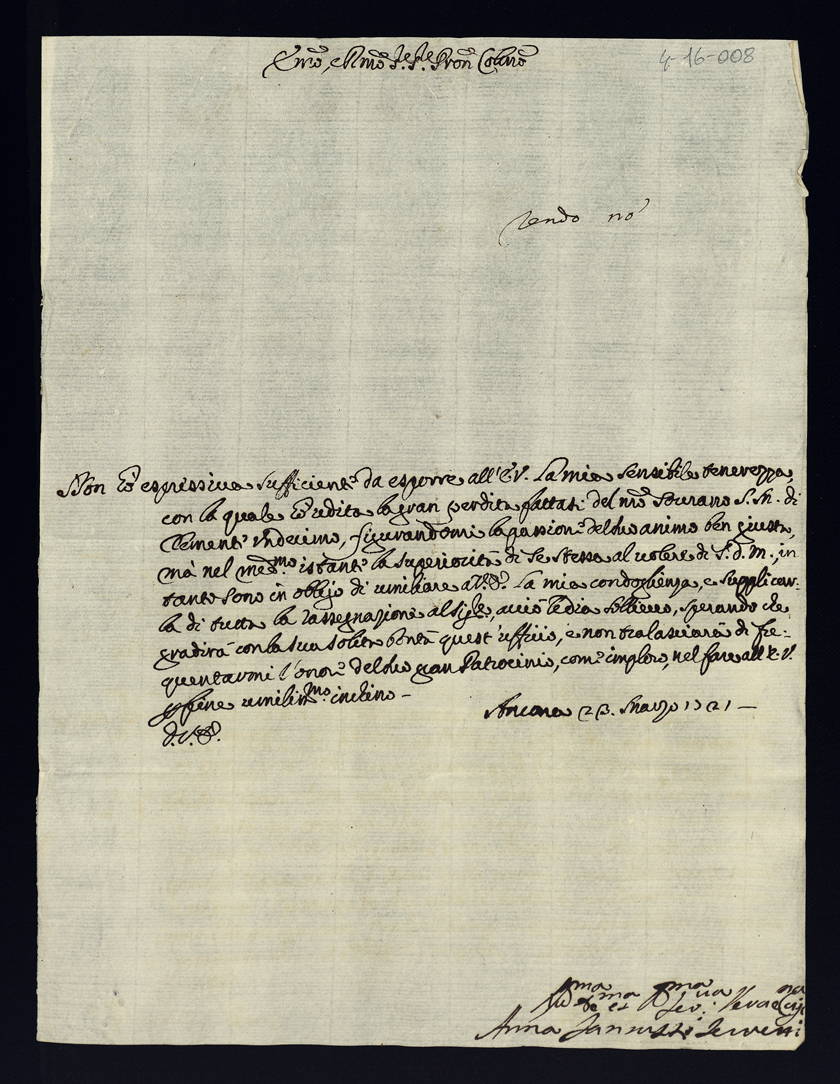 Emo, e Rmo Sre Sre Pron Colmo
4-16-008
rendo no
Non è espressiva sufficiente da esporre all'E.V. la mia sensibile tenerezza,
con la quale ò udita la gran perdita fattasi del nro Sourano S.M. di
Clemente Undecimo, figurandomi la passione del suo animo ben giusta,
mà nel medmo istante la superiorità di se stessa al volere di S.D.M., in
tanto sono in obligo di umiliare a V.E. la mia condoglienza, e supplicar-
la di tutta la rassegnazione, acciò le dia sollieuo, sperando che
gradirà con la sua solita bontà quest'uffizio, e non tralascierà di fre-
quentarmi l'onore del suo gran Patrocinio, come imploro, nel fare all'E.V.
per fine umilissmo inchino -
Ancona 23. Marzo 1721 -
D.V.E.
Anna